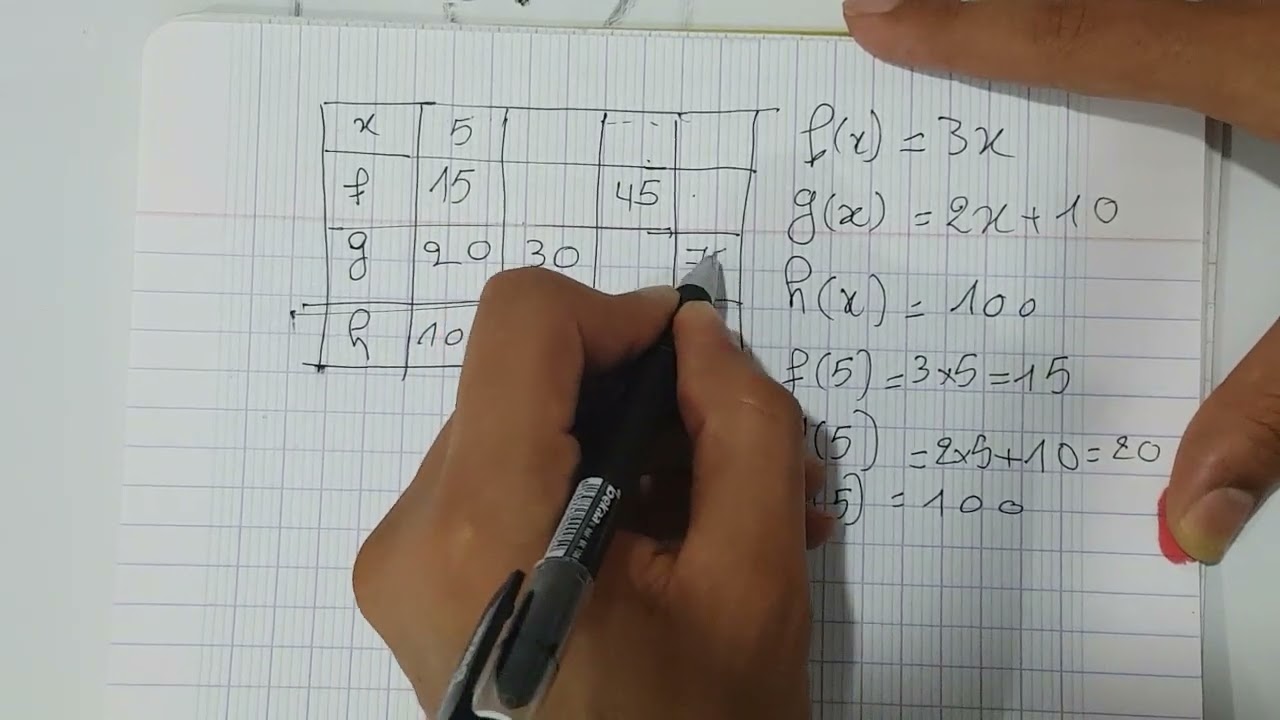 x 5
f 15 45
g 20 30
h 10
f(x) = 3x
g(x) = 2x + 10
h(x) = 100
f(5) = 3×5 = 15
(5) = 2×5+10 = 20
5) = 100